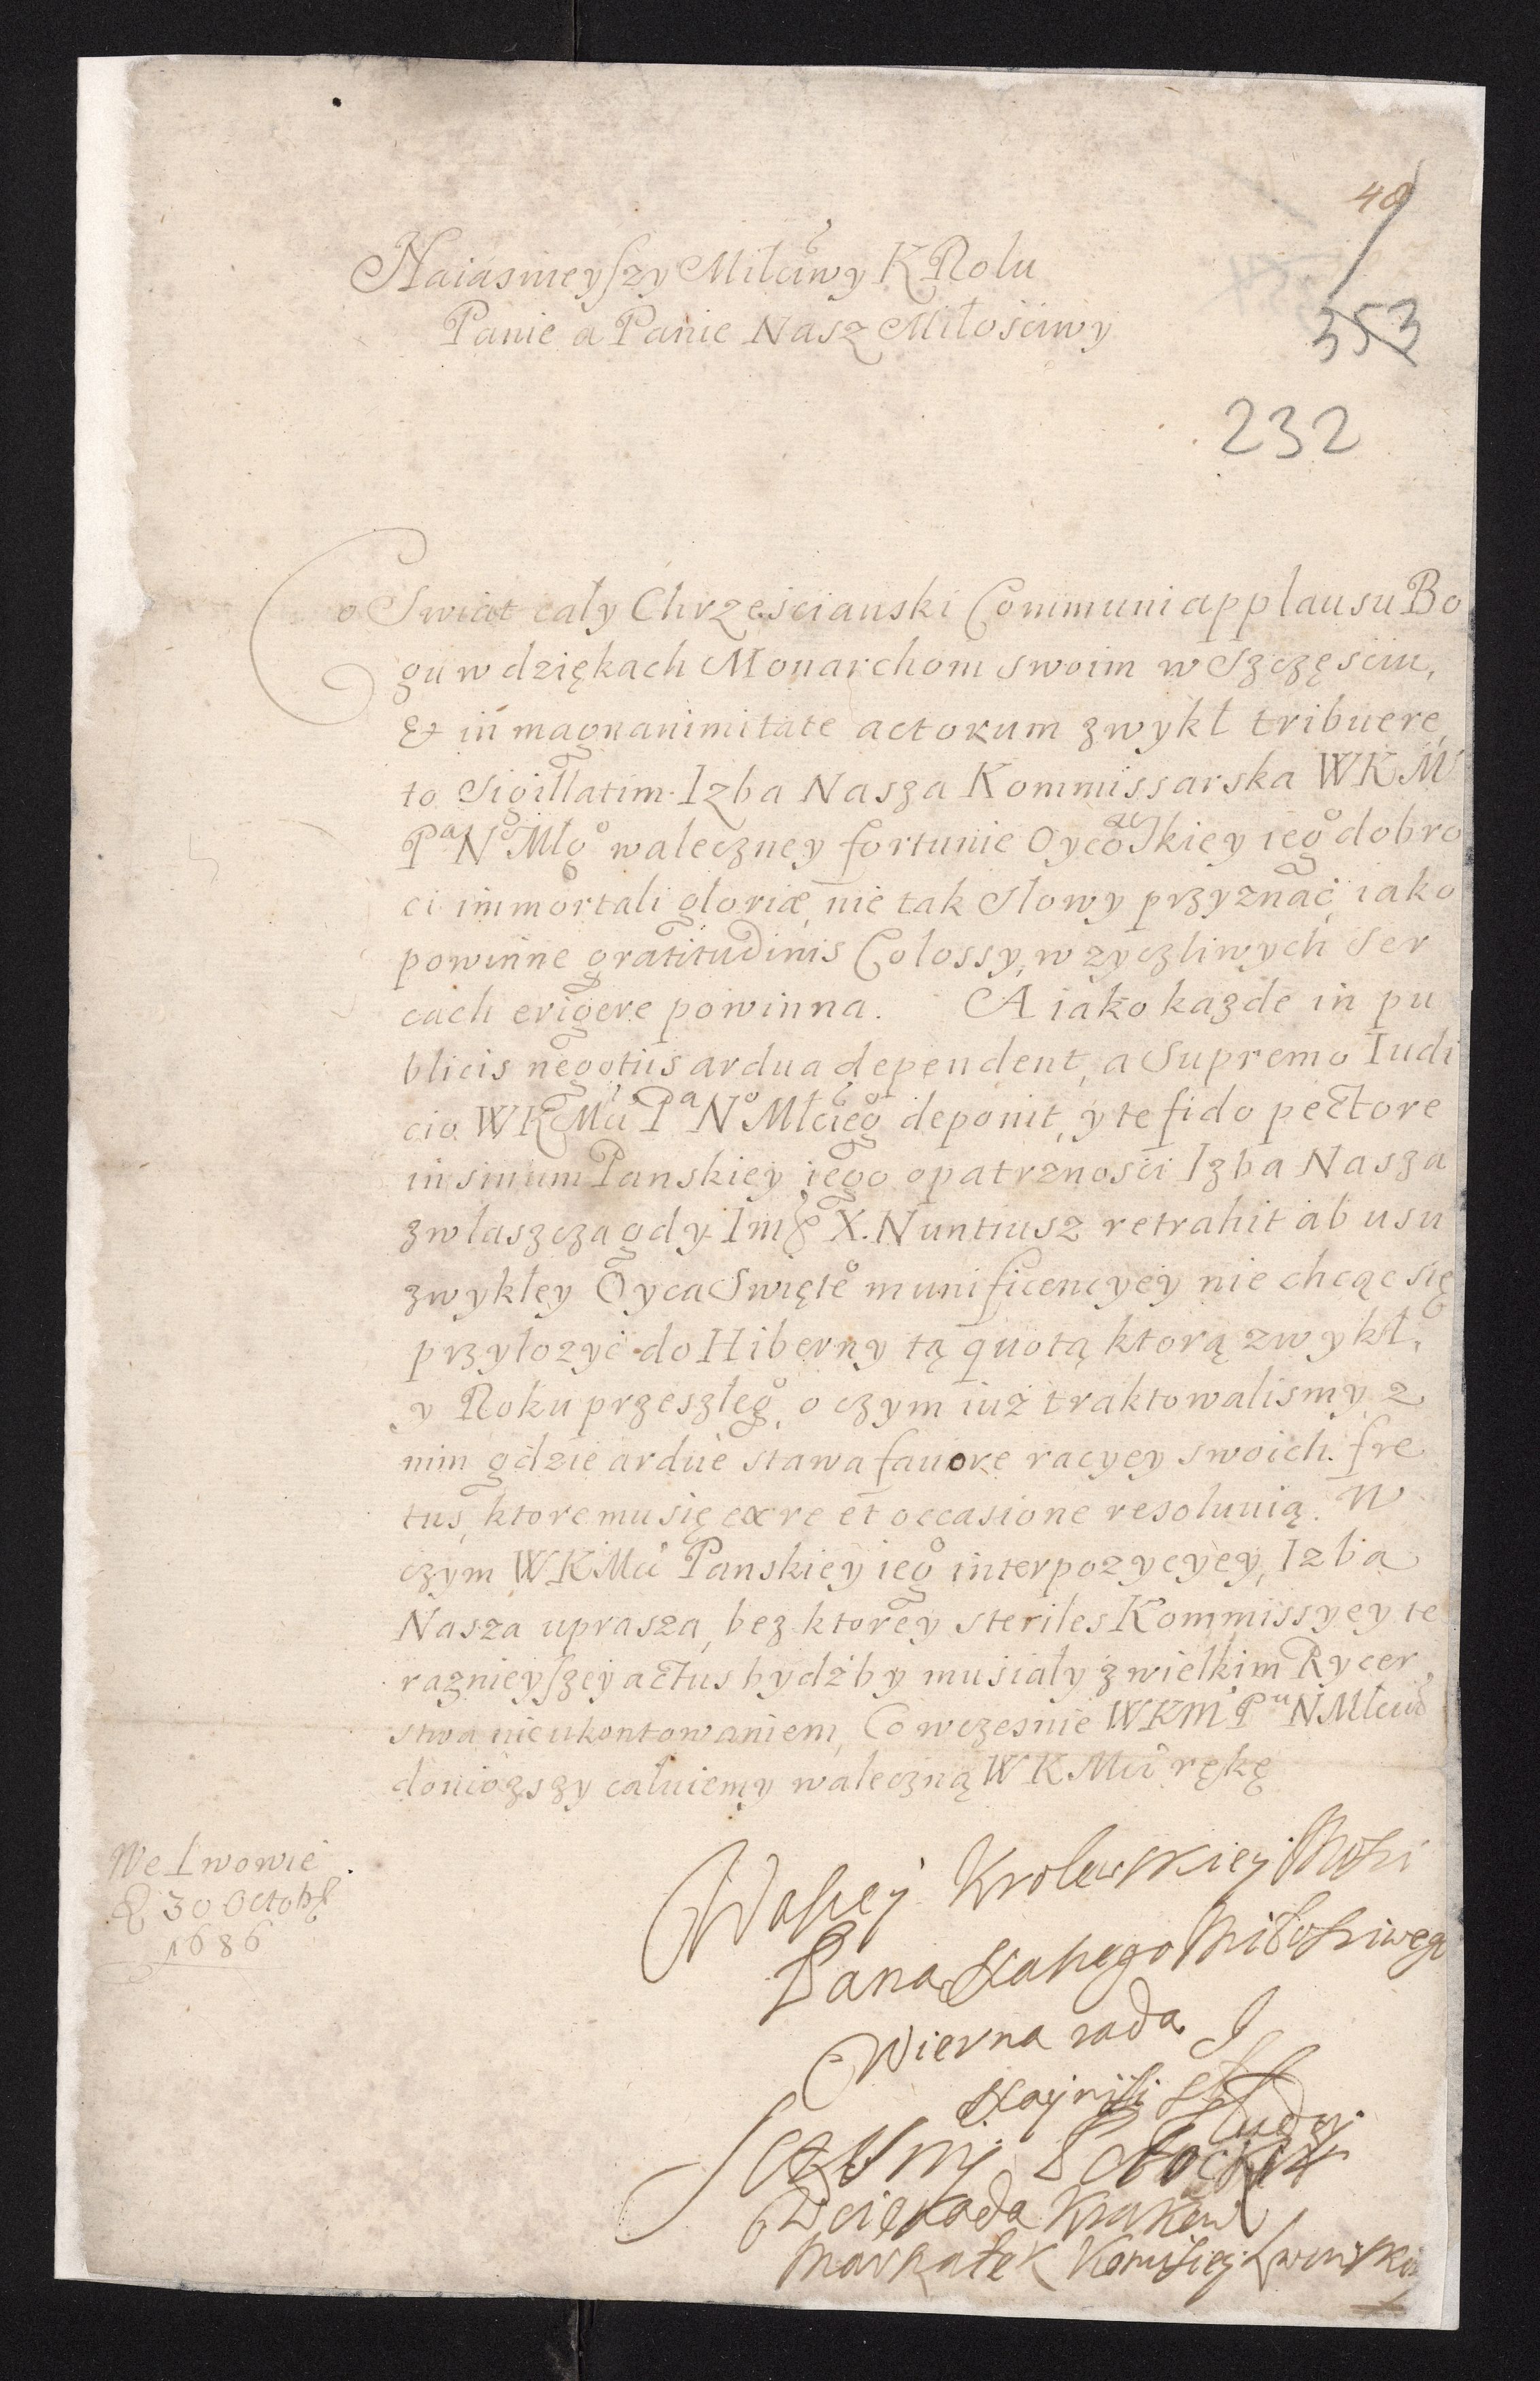 48
Naiasnieyszy Milciwy KRolu
Panie a Panie Nasz Miłościwy
353
232
Co Swiat cały Chrzesciański Communi applausu Bo
gu w dziękach Monarchom swoim w Szczęsciu,
& in magnanimitate actorum zwykł tribuere
to Sigillatim Izba Nasza Kommissarska WKM
Pa No Młgo waleczney fortunie Oycowskiey iego dobro
ci immortali gloriæ, nie tak słowy przyznać, iako
powinne gratitudinis Colossy, w zyczliwych Ser
cach erigere powinna. A iako kazde in pu
blicis negotiis ardua dependent, a Supremo Iudi
cio WKMci Pa No Młciego deponit, y te fido pectore
in sinum Panskiey iego opatrznosci Izba Nasza
zwłaszcza gdy Im X. Nuntiusz retrahit ab usu
zwykłey Oyca Swięteo munificencyey nie chcąc się
przyłozyć do Hiberny tą quotą ktorą zwykł,
y Roku przeszłego, o czym iuż traktowalismy z
nim gdzie ardue stawa fauore racyey swoich fre
tus, ktore mu się ex re et occasione resoluuią. W
czym WKMci Panskiey iego interpozycyey, Izba
Nasza uprasza, bez ktorey steriles Kommissyey te
raznieyszey actus bydź by musiały z wielkim Rycer
stwa nieukontowaniem, Co wczesnie WKM Pu NMłciwo
doniozszy całuiemy waleczną WKMci rękę
We Lwowie
D 30 Octobr
1686
Waszey Krolewskiey Mosci
Pana Naszego Miłosciwego
Wierna rada I
Nayniższi
Słudzy
Sczęsny Potocki
Woiewoda Krakow
Marszałek Komisiey Lwowskiey